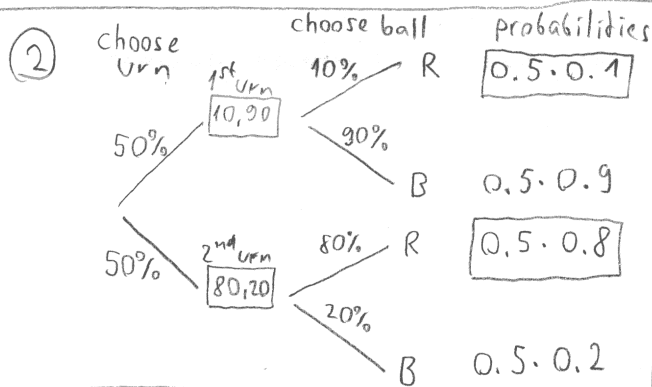 2 choose urn choose ball probabilities
1st urn 10% R 0.5·0.1
10,90
50% 90%
B 0.5·0.9
50% 2nd urn 80% R 0.5·0.8
80,20
20%
B 0.5·0.2